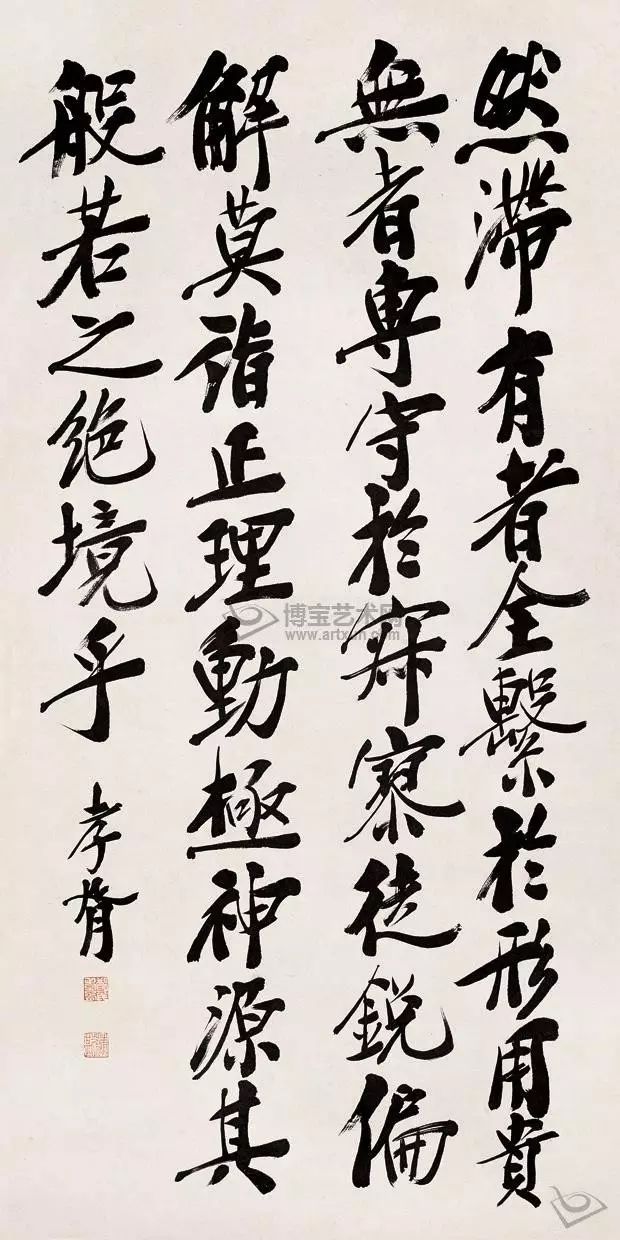 然滯有者全繫於形用貴
無者專守於寂寥徒銳偏
解莫詣正理動極神源其
般若之絕境乎
孝胥
博宝艺术网
www.artxun.com